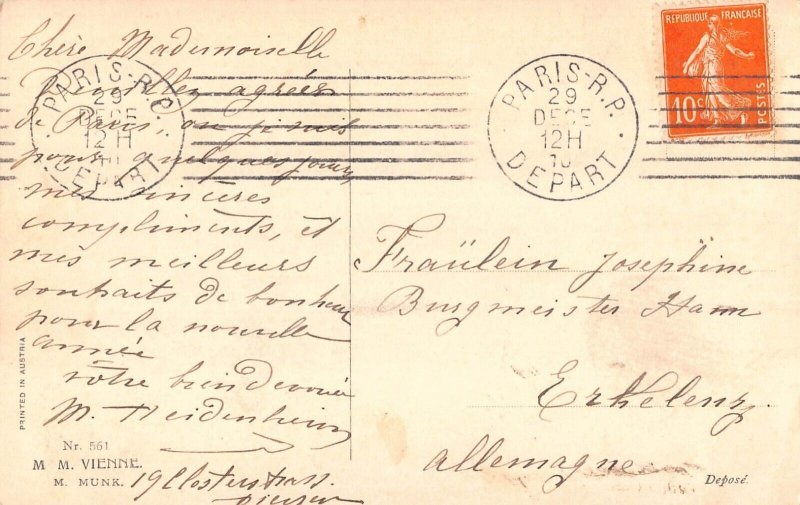 Chère Mademoiselle
Veuillez agréer
de Paris, ou je suis
pour quelques jours,
mes sincères
compliments, et
mes meilleurs
souhaits de bonheur
pour la nouvelle
année
votre bien dévoué
M. Heidenheim
19 Closterstrass.
PARIS-R.P.
29
DECE
12H
10
DEPART
PARIS-R.P.
29
DECE
12H
10
DEPART
REPUBLIQUE FRANÇAISE
10c
POSTES
Fräulein Josephine
Burgmeister Hann
Erkelenz.
Allemagne
PRINTED IN AUSTRIA
Nr. 561
M M. VIENNE.
M. MUNK.
Deposé.